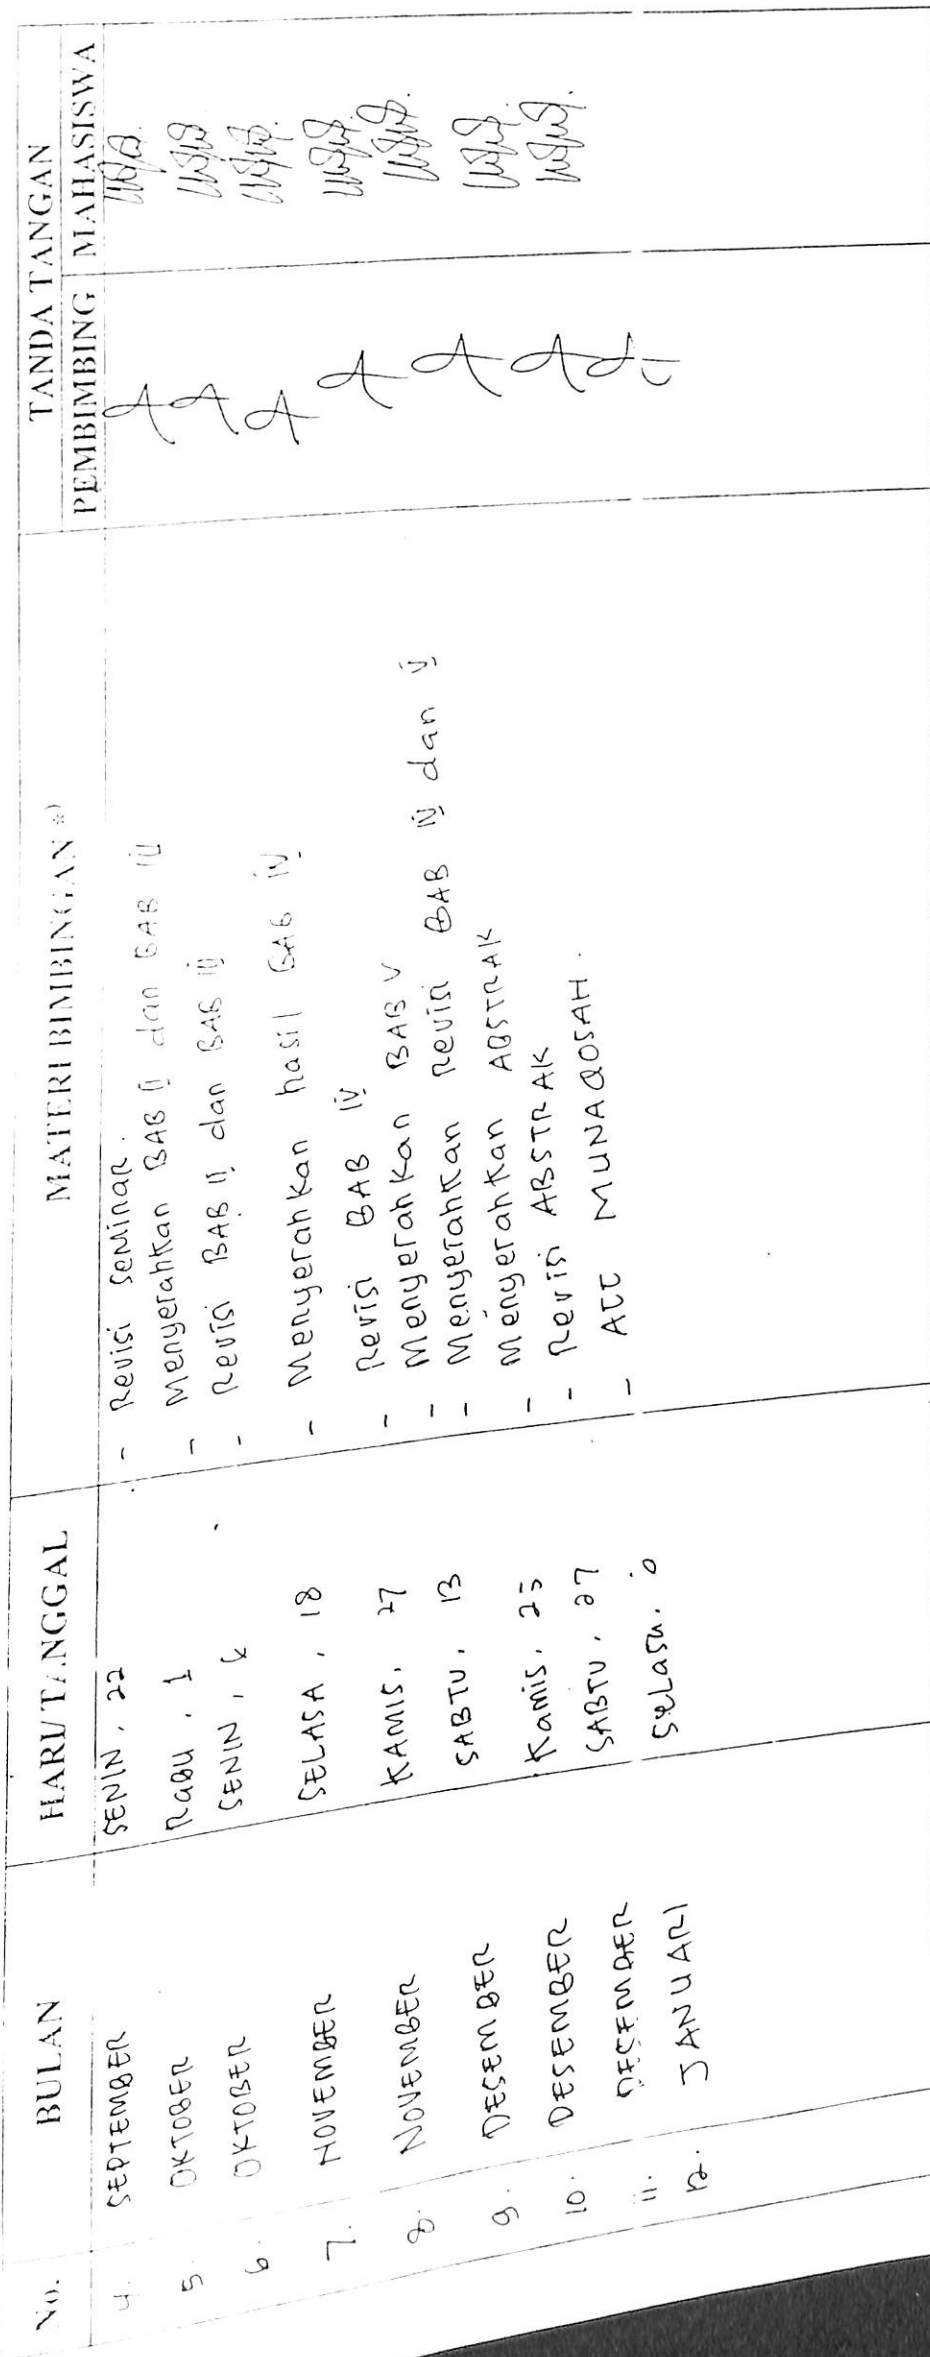 No. BULAN HARI/TANGGAL MATERI BIMBINGAN *) TANDA TANGAN
PEMBIMBING MAHASISWA
4. SEPTEMBER SENIN, 22 - Revisi seminar.
5. OKTOBER RABU, 1 - Menyerahkan BAB II dan BAB III
6. OKTOBER SENIN, 6 - Revisi BAB II dan BAB III
7. NOVEMBER SELASA, 18 - Menyerahkan hasil BAB IV
8. NOVEMBER KAMIS, 27 - Revisi BAB IV
- Menyerahkan BAB V
9. DESEMBER SABTU, 13 - Menyerahkan Revisi BAB IV dan V
- Menyerahkan ABSTRAK
10. DESEMBER Kamis, 25 - Revisi ABSTRAK
11. DESEMBER SABTU, 27 - ACC MUNAQOSAH.
12. JANUARI Selasa,